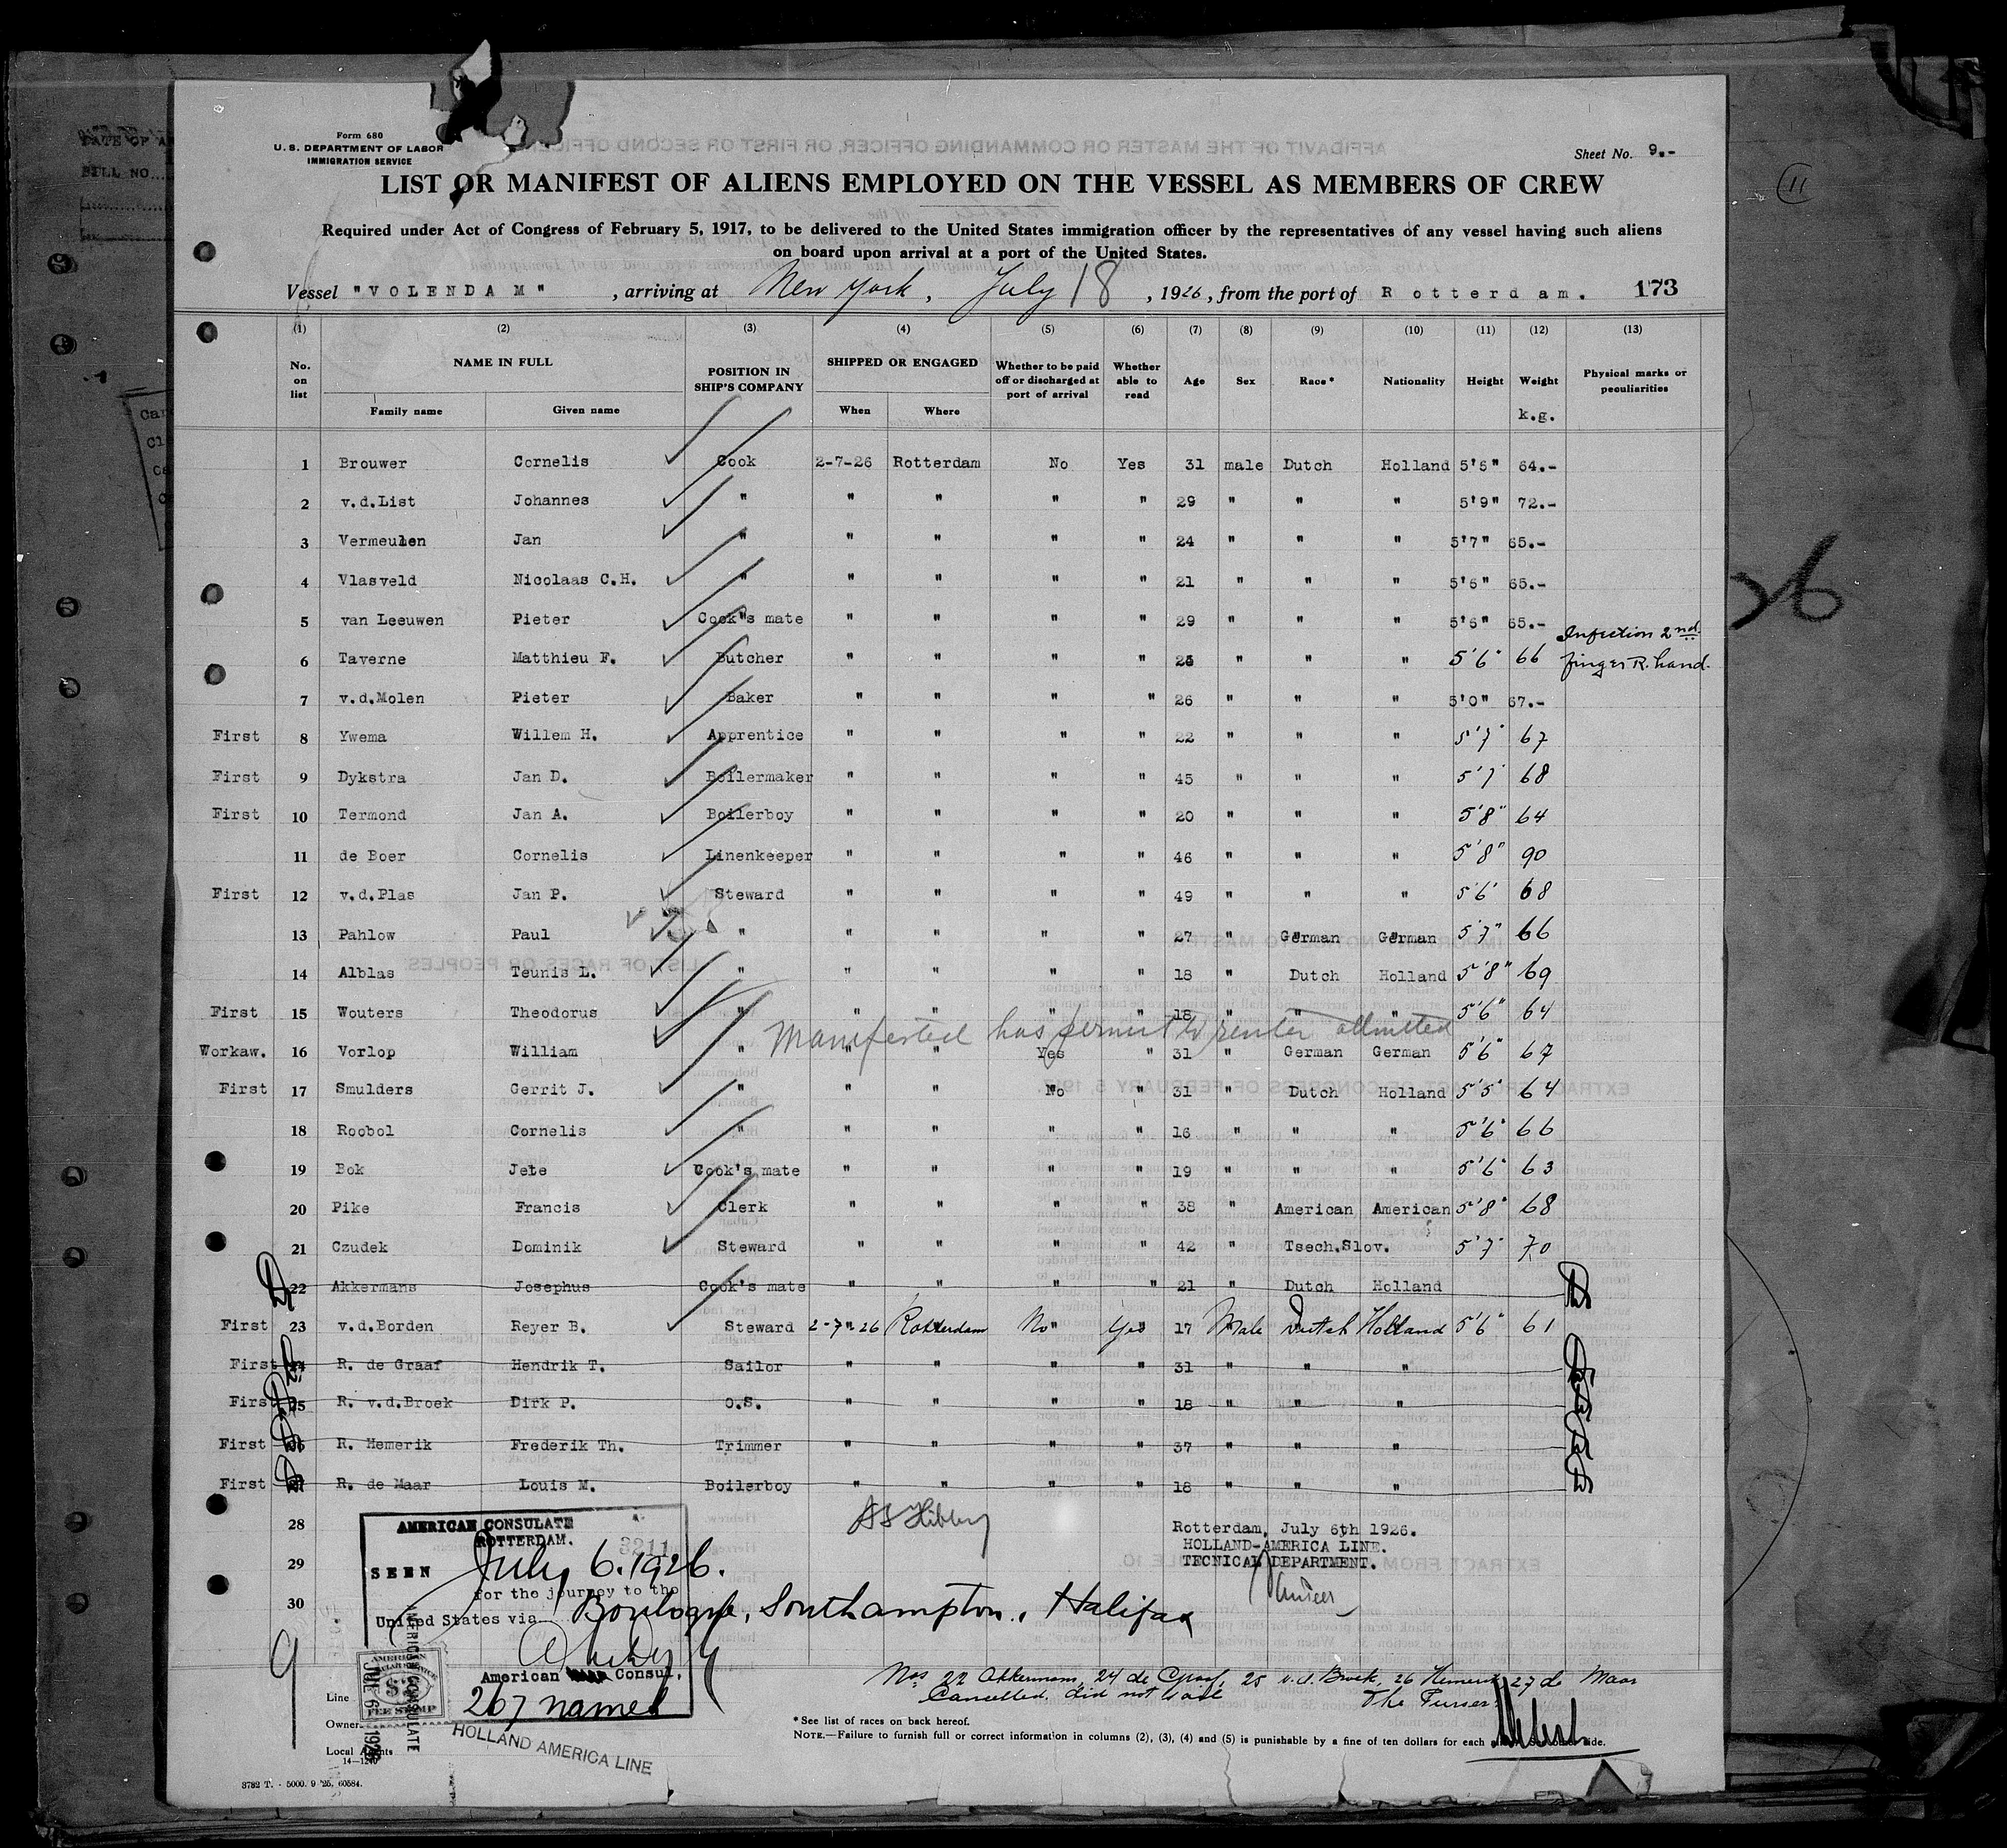 Form 680
U. S. DEPARTMENT OF LABOR
IMMIGRATION SERVICE
Sheet No. 9.-
LIST OR MANIFEST OF ALIENS EMPLOYED ON THE VESSEL AS MEMBERS OF CREW
Required under Act of Congress of February 5, 1917, to be delivered to the United States immigration officer by the representatives of any vessel having such aliens
on board upon arrival at a port of the United States.
Vessel "VOLENDAM", arriving at New York, July 18, 1926, from the port of Rotterdam. 173
(1) (2) (3) (4) (5) (6) (7) (8) (9) (10) (11) (12) (13)
No. on list NAME IN FULL Family name Given name POSITION IN SHIP'S COMPANY SHIPPED OR ENGAGED When Where Whether to be paid off or discharged at port of arrival Whether able to read Age Sex Race* Nationality Height Weight k.g. Physical marks or peculiarities
1 Brouwer Cornelis Cook 2-7-26 Rotterdam No Yes 31 male Dutch Holland 5'6" 64.-
2 v.d.List Johannes " " " " " 29 " " " 5'9" 72.-
3 Vermeulen Jan " " " " " 24 " " " 5'7" 65.-
4 Vlasveld Nicolaas C.H. " " " " " 21 " " " 5'6" 65.-
5 van Leeuwen Pieter Cook"s mate " " " " 29 " " " 5'6" 65.-
6 Taverne Matthieu F. Butcher " " " " 25 " " " 5'6" 66 Infection 2nd finger R. hand.
7 v.d.Molen Pieter Baker " " " " 26 " " " 5'0" 67.-
First 8 Ywema Willem H. Apprentice " " " " 22 " " " 5'7" 67
First 9 Dykstra Jan D. Boilermaker " " " " 45 " " " 5'7" 68
First 10 Termond Jan A. Boilerboy " " " " 20 " " " 5'8" 64
11 de Boer Cornelis Linenkeeper " " " " 46 " " " 5'8" 90
First 12 v.d.Plas Jan P. Steward " " " " 49 " " " 5'6" 68
13 Pahlow Paul " " " " " 27 " German German 5'7" 66
14 Alblas Teunis L. " " " " " 18 " Dutch Holland 5'8" 69
First 15 Wouters Theodorus " " " " " 18 " " " 5'6" 64
Manifested has permit to reenter admitted
Workaw. 16 Vorlop William " " " Yes " 31 " German German 5'6" 67
First 17 Smulders Gerrit J. " " " No " 31 " Dutch Holland 5'5" 64
18 Roobol Cornelis " " " " " 16 " " " 5'6" 66
19 Bok Jete Cook's mate " " " " 19 " " " 5'6" 63
20 Pike Francis Clerk " " " " 38 " American American 5'8" 68
21 Czudek Dominik Steward " " " " 42 " Tsech.Slov. 5'7" 70
22 Akkermans Josephus Cook's mate " " " " 21 " Dutch Holland
First 23 v.d.Borden Reyer B. Steward 2-7-26 Rotterdam No Yes 17 Male Dutch Holland 5'6" 61
First 24 R. de Graaf Hendrik T. Sailor " " " " 31 " " "
First 25 R. v.d.Broek Dirk P. O.S. " " " " 18 " " "
First 26 R. Hemerik Frederik Th. Trimmer " " " " 37 " " "
First 27 R. de Maar Louis M. Boilerboy " " " " 18 " " "
28
29
30
AMERICAN CONSULATE
ROTTERDAM.
3211
SEEN July 6. 1926.
for the journey to the
United States via Boulogne, Southampton, Halifax
American Consul.
267 names
Rotterdam, July 6th 1926.
HOLLAND-AMERICA LINE.
TECNICAL DEPARTMENT.
AMERICAN
FEE STAMP
AMERICAN CONSULATE
JUL 6 1926
9
Nos 22 Akkermans, 24 de Graaf, 25 v.d. Broek, 26 Hemerik, 27 de Maar
Cancelled, did not sail
The Purser:
Line
Owner
Local Agents
14—1240
HOLLAND AMERICA LINE
* See list of races on back hereof.
NOTE.—Failure to furnish full or correct information in columns (2), (3), (4) and (5) is punishable by a fine of ten dollars for each
3782 T. - 5000. 9 '25, 60584.
11